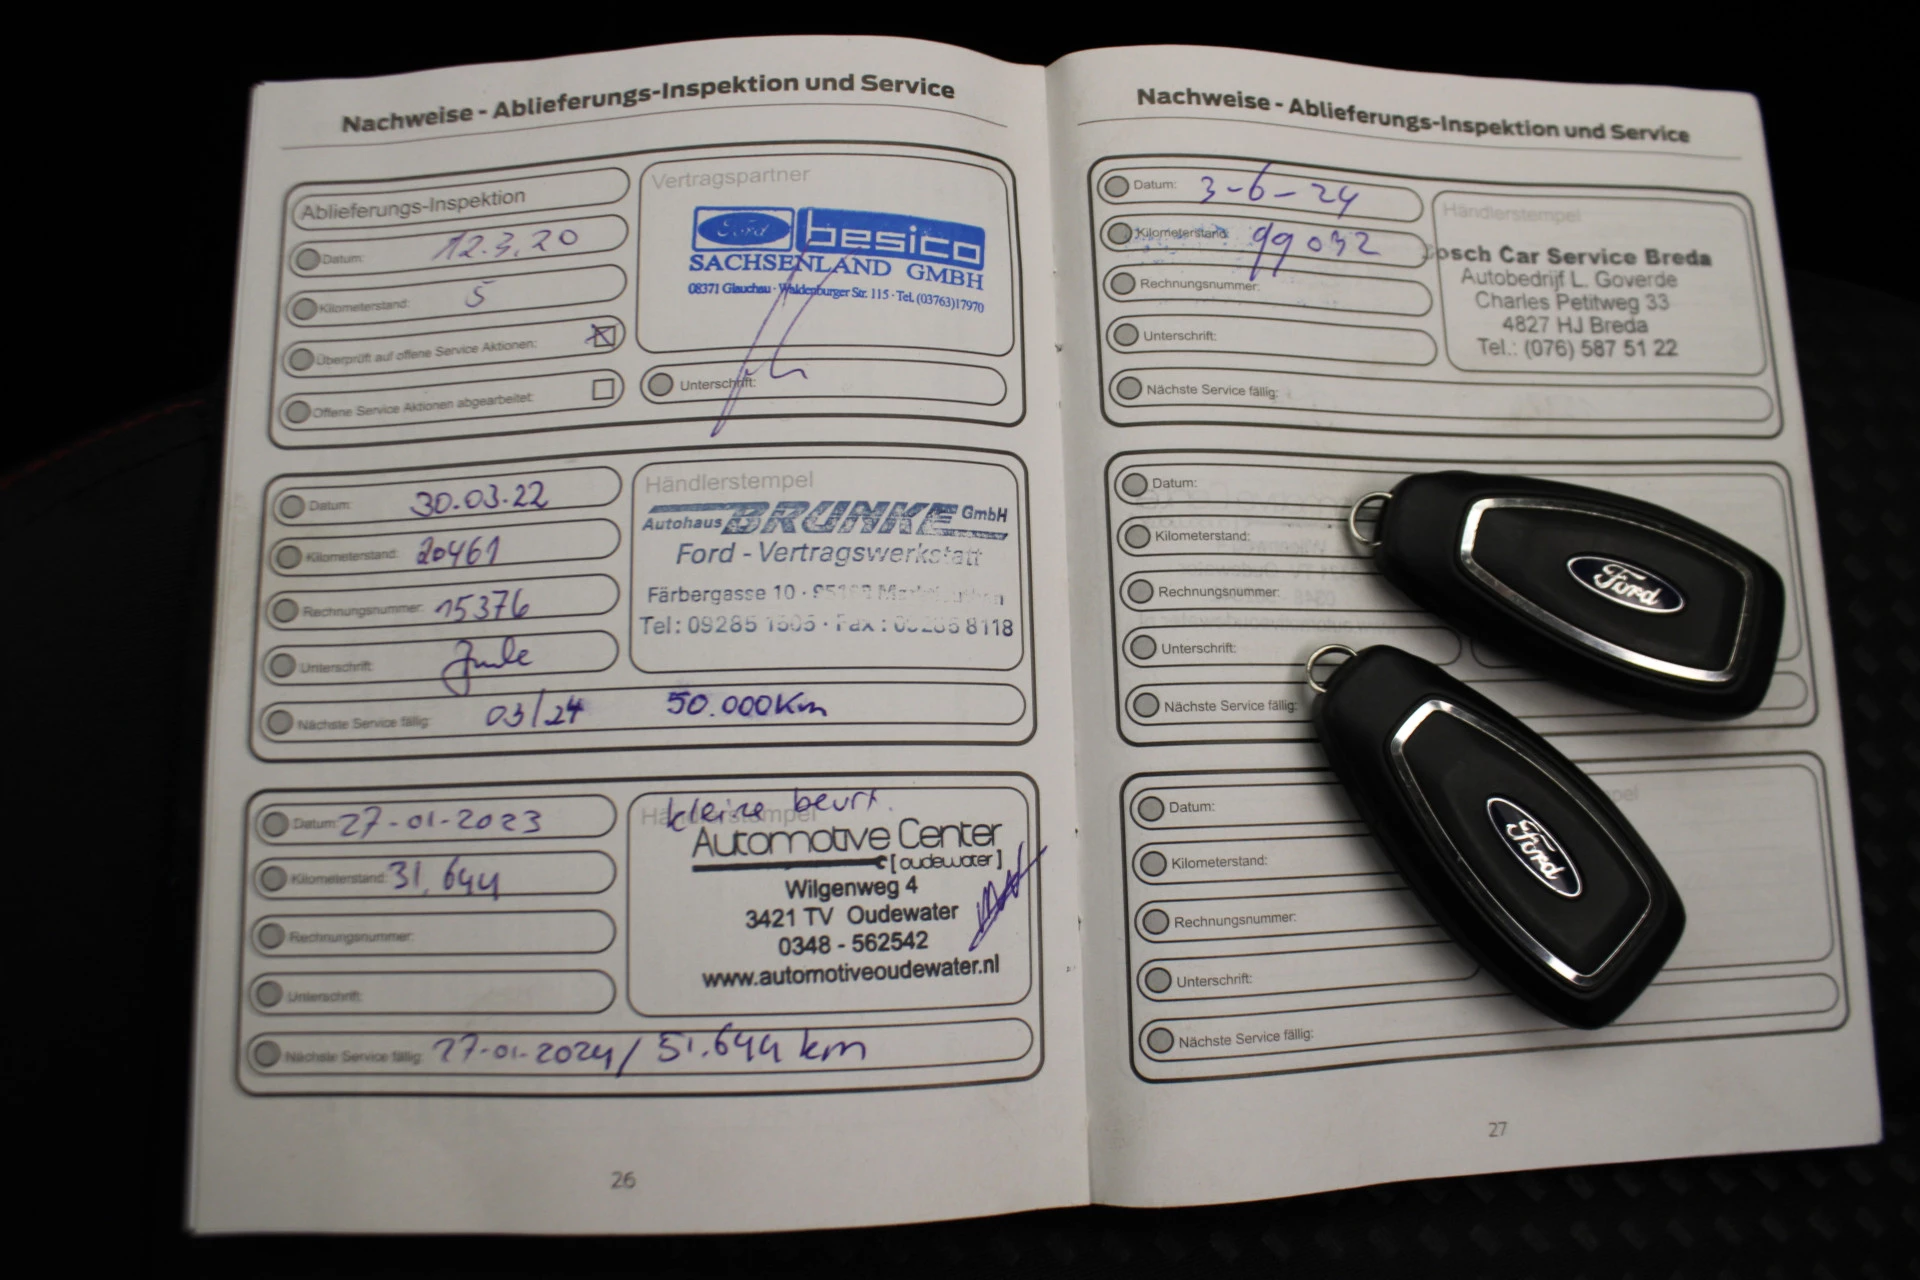 Nachweise - Ablieferungs-Inspektion und Service
Ablieferungs-Inspektion
Datum: 12.3.20
Kilometerstand: 5
Überprüft auf offene Service Aktionen:
Offene Service Aktionen abgearbeitet:
Vertragspartner
Ford besico
SACHSENLAND GMBH
08371 Glauchau · Waldenburger Str. 115 · Tel. (03763)17970
Unterschrift:
Datum: 30.03.22
Kilometerstand: 20461
Rechnungsnummer: 15376
Unterschrift:
Nächste Service fällig: 03/24 50.000Km
Händlerstempel
Autohaus BRUNKE GmbH
Ford - Vertragswerkstatt
Färbergasse 10
Tel: 09285 Fax: 8118
Datum: 27-01-2023
Kilometerstand: 31,644
Rechnungsnummer:
Unterschrift:
Nächste Service fällig: 27-01-2024/ 51.644 km
kleine beurt.
Händlerstempel
Automotive Center
[oudewater]
Wilgenweg 4
3421 TV Oudewater
0348 - 562542
www.automotiveoudewater.nl
26
Nachweise - Ablieferungs-Inspektion und Service
Datum: 3-6-24
Kilometerstand: 99032
Rechnungsnummer:
Unterschrift:
Nächste Service fällig:
Händlerstempel
osch Car Service Breda
Autobedrijf L. Goverde
Charles Petitweg 33
4827 HJ Breda
Tel.: (076) 587 51 22
Datum:
Kilometerstand:
Rechnungsnummer:
Unterschrift:
Nächste Service fällig:
Ford
Datum:
Kilometerstand:
Rechnungsnummer:
Unterschrift:
Nächste Service fällig:
Ford
27